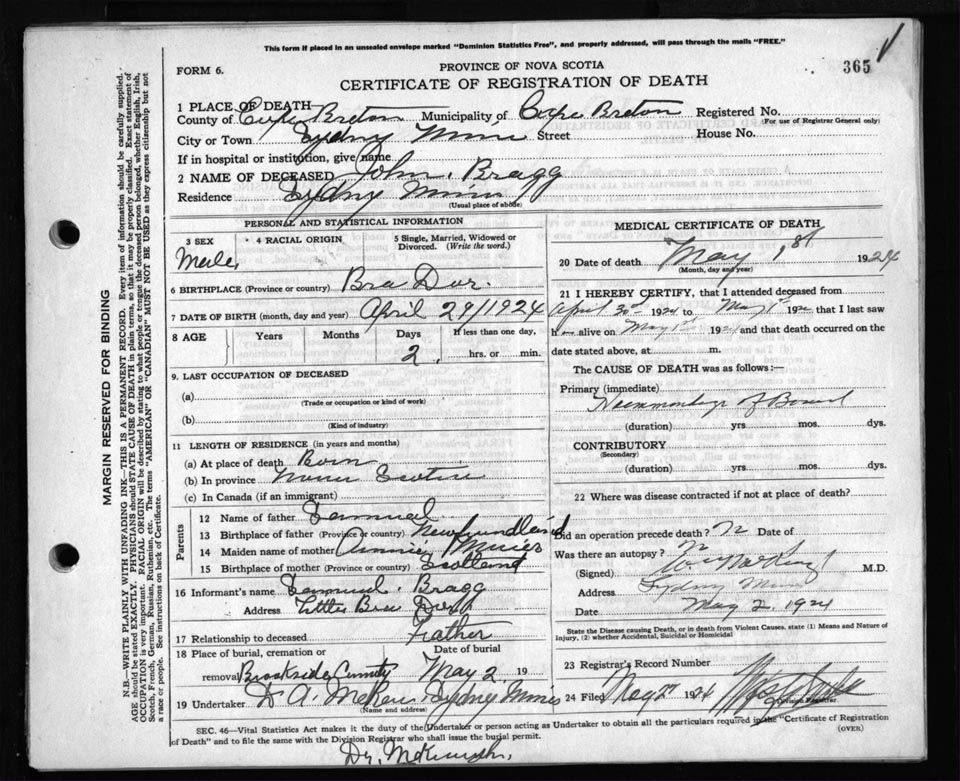 This form if placed in an unsealed envelope marked "Dominion Statistics Free", and properly addressed, will pass through the mails "FREE."
FORM 6.
PROVINCE OF NOVA SCOTIA
365
CERTIFICATE OF REGISTRATION OF DEATH
1 PLACE OF DEATH
County of Cape Breton Municipality of Cape Breton Registered No.
(For use of Registrar General only)
City or Town Sydney Mines Street House No.
If in hospital or institution, give name
2 NAME OF DECEASED John Bragg
Residence Sydney Mines
(Usual place of abode)
PERSONAL AND STATISTICAL INFORMATION
3 SEX 4 RACIAL ORIGIN 5 Single, Married, Widowed or Divorced. (Write the word.)
Male
6 BIRTHPLACE (Province or country) Bra Dor.
7 DATE OF BIRTH (month, day and year) April 29/1924
8 AGE Years Months Days If less than one day,
2 hrs. or min.
9. LAST OCCUPATION OF DECEASED
(a)
(Trade or occupation or kind of work)
(b)
(Kind of industry)
11 LENGTH OF RESIDENCE (in years and months)
(a) At place of death Born
(b) In province Nova Scotia
(c) In Canada (if an immigrant)
Parents
12 Name of father Samuel
13 Birthplace of father (Province or country) Newfoundland
14 Maiden name of mother Annie
15 Birthplace of mother (Province or country) Scotland
16 Informant's name Samuel. Bragg
Address Little Bra Dor
17 Relationship to deceased Father
18 Place of burial, cremation or removal Date of burial
Brookside May 2 19
19 Undertaker A. McRae Sydney Mines
(Name and address)
MEDICAL CERTIFICATE OF DEATH
20 Date of death May 1st 1924
(Month, day and year)
21 I HEREBY CERTIFY, that I attended deceased from
April 30 1924 to May 1st 1924 that I last saw
h alive on May 1st 1924 and that death occurred on the
date stated above, at m.
The CAUSE OF DEATH was as follows:—
Primary (immediate)
Haemorrhage of Bowel
(duration) yrs mos. dys.
CONTRIBUTORY
(Secondary)
(duration) yrs mos. dys.
22 Where was disease contracted if not at place of death?
Did an operation precede death? Date of
Was there an autopsy?
(Signed) M.D.
Address Sydney Mines
Date May 2, 1924
State the Disease causing Death, or in death from Violent Causes, state (1) Means and Nature of Injury, (2) whether Accidental, Suicidal or Homicidal
23 Registrar's Record Number
24 Filed May 2 1924
Division Registrar.
SEC. 46—Vital Statistics Act makes it the duty of the Undertaker or person acting as Undertaker to obtain all the particulars required in the "Certificate of Registration
of Death" and to file the same with the Division Registrar who shall issue the burial permit.
(OVER)
Dr.
MARGIN RESERVED FOR BINDING
N.B.—WRITE PLAINLY WITH UNFADING INK—THIS IS A PERMANENT RECORD. Every item of information should be carefully supplied.
AGE should be stated EXACTLY. PHYSICIANS should STATE CAUSE OF DEATH in plain terms, so that it may be properly classified. Exact statement of
OCCUPATION is very important. RACIAL ORIGIN will be described by stating to what people or tongue the deceased person belonged, whether English, Irish,
Scotch, French, German, Russian, Ruthenian, etc. The terms "AMERICAN" or "CANADIAN" MUST NOT BE USED as they express citizenship but not
a race or people. See instructions on back of Certificate.